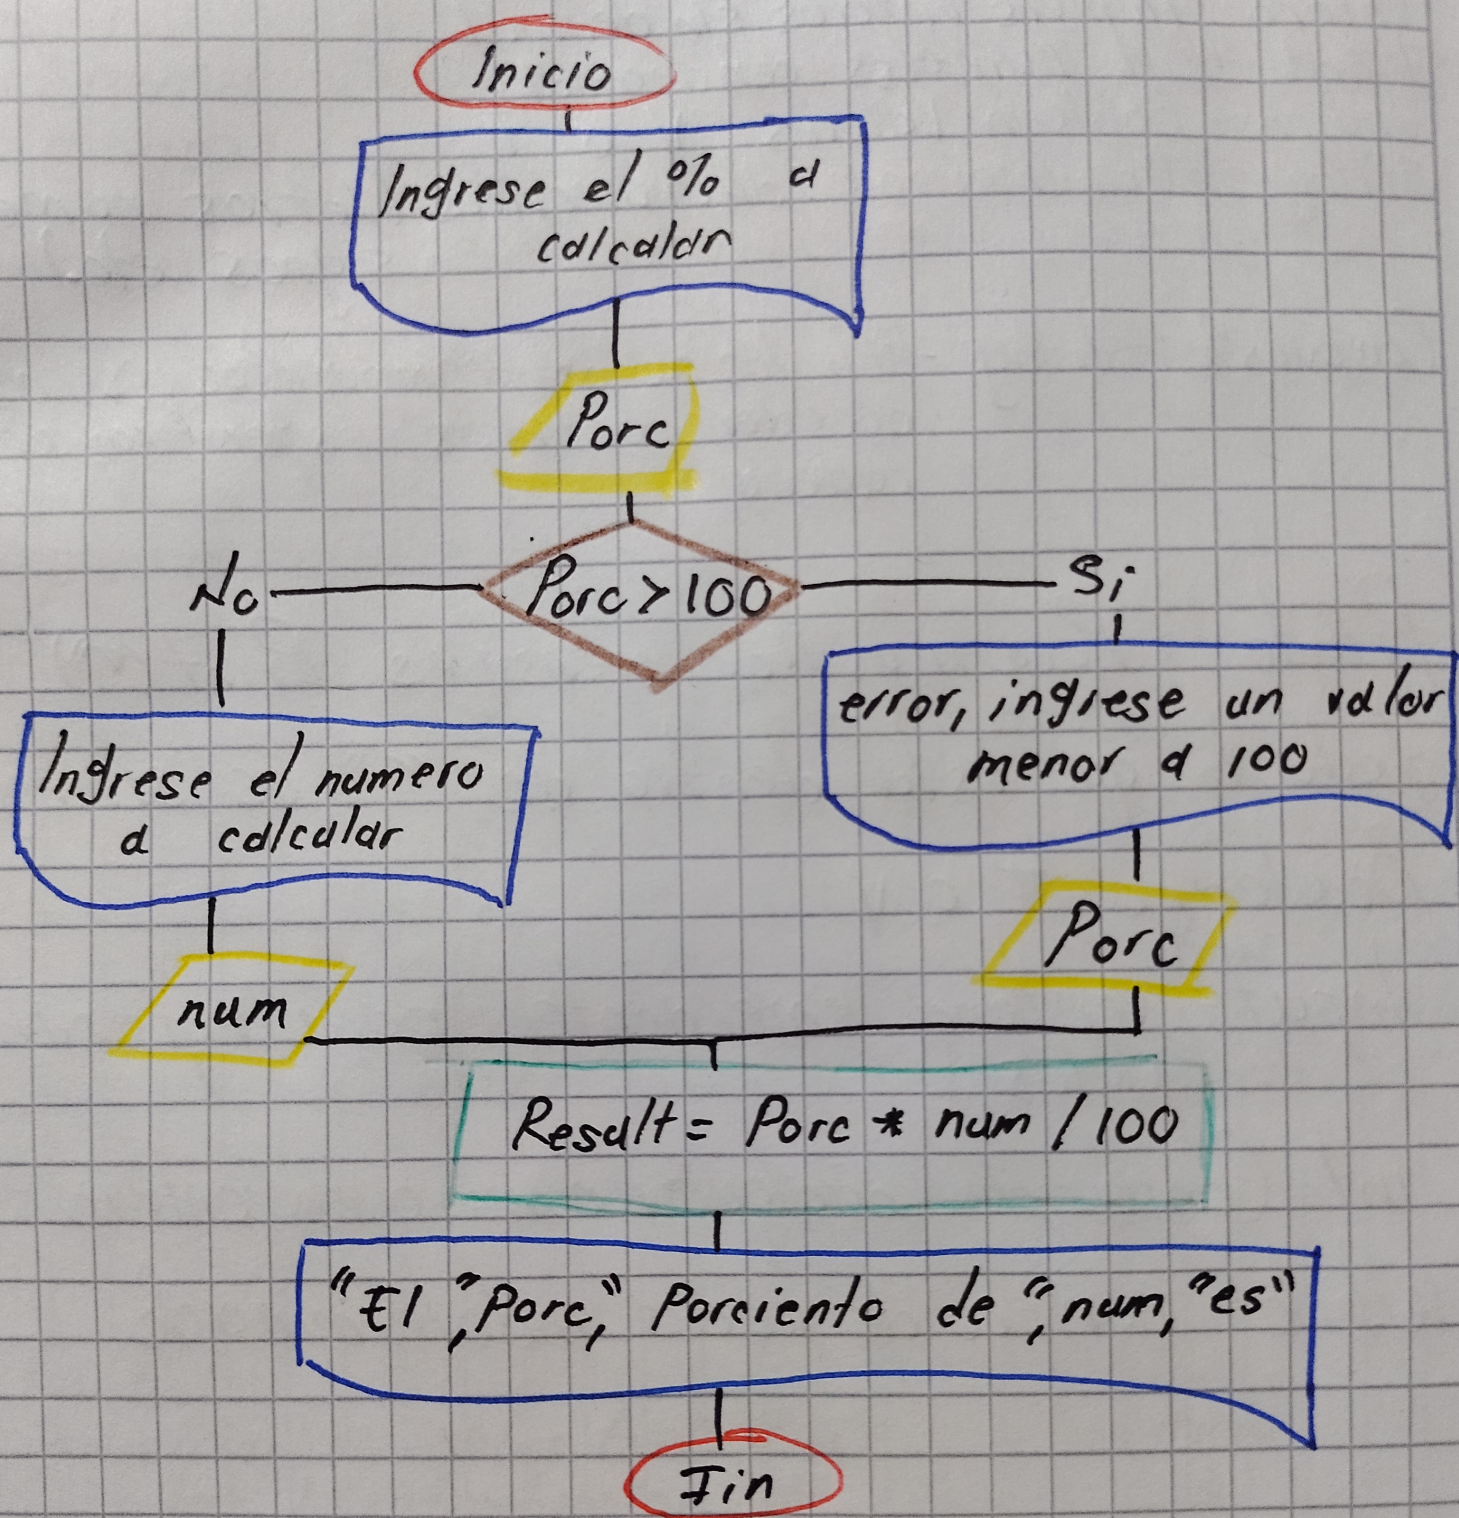 Inicio
Ingrese el % a
calcular
Porc
No
Porc > 100
Si
Ingrese el numero
a calcular
error, ingrese un valor
menor a 100
num
Porc
Result = Porc * num / 100
"El ", Porc, " Porciento de ", num, "es"
Fin